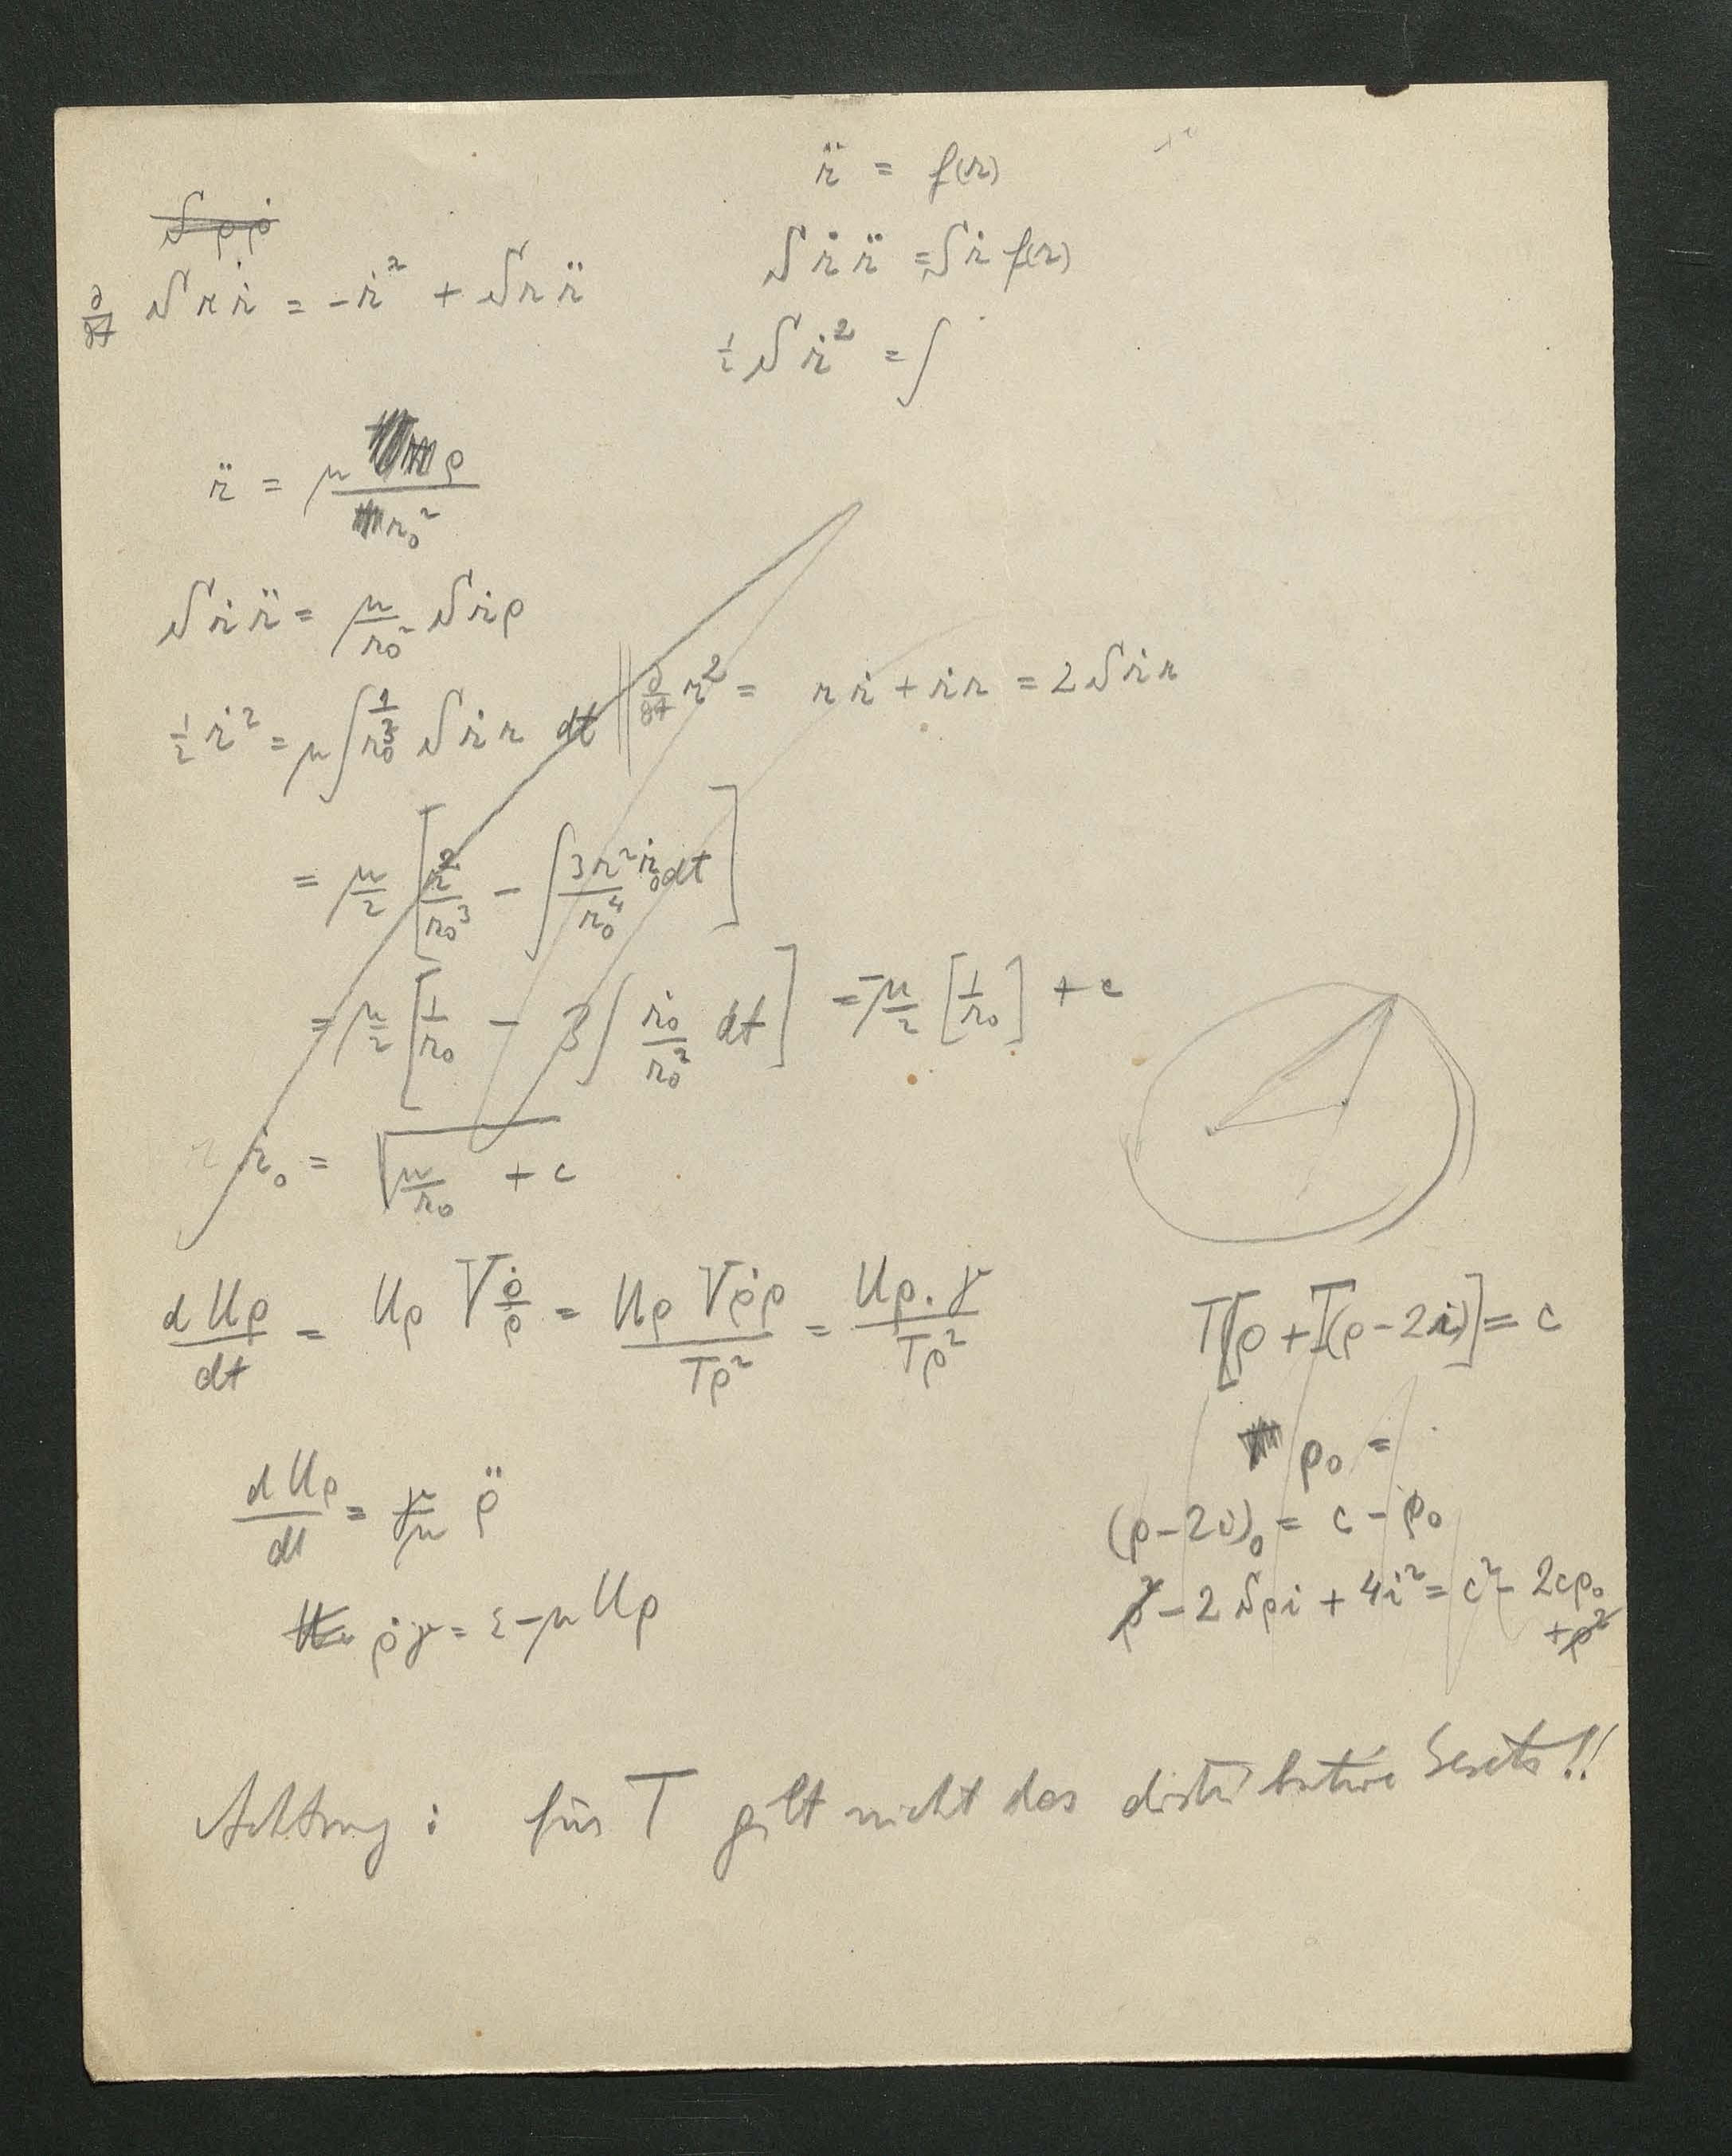 r̈ = f(r)
S ρ ρ̇
S ṙ r̈ = S ṙ f(r)
∂/∂t S r ṙ = - ṙ² + S r r̈
½ S ṙ² = ∫
r̈ = μ ρ / r₀²
S ṙ r̈ = μ/r₀² S ṙ ρ
½ ṙ² = μ ∫ 1/r₀³ S ṙ r dt || ∂/∂t r² = r ṙ + ṙ r = 2 S ṙ r
= μ/2 [ r²/r₀³ - ∫ 3r² ṙ₀ dt / r₀⁴ ]
= μ/2 [ 1/r₀ - 3 ∫ ṙ₀/r₀² dt ] = -μ/2 [ 1/r₀ ] + c
ṙ₀ = √( μ/r₀ + c )
d Uρ / dt = Uρ V ρ̇/ρ = Uρ Vρ̇ρ / Tρ² = Uρ . γ / Tρ²
T[ρ + T(ρ - 2i)] = c
ρ₀ =
d Uρ / dt = γ/μ ρ̈
(ρ - 2i)₀ = c - ρ₀
ρ² - 2 S ρ i + 4i² = c² - 2cρ₀
+ρ²
ρ̇γ = ε - μ Uρ
Achtung : für T gilt nicht das distributive Gesetz !!